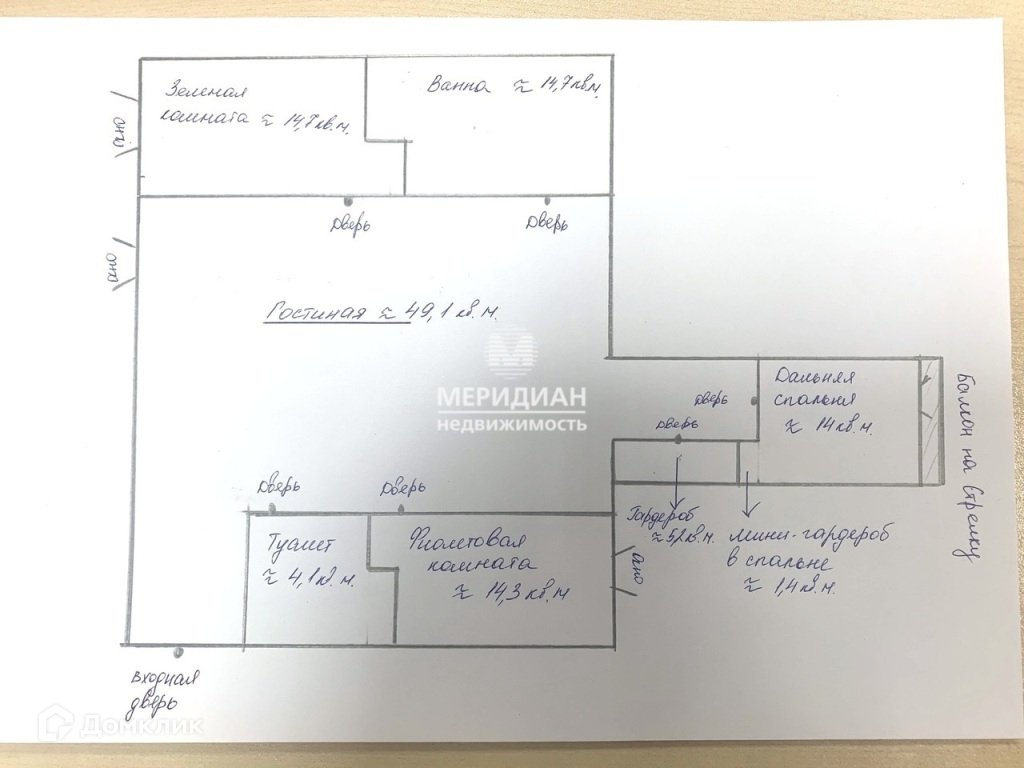 Зеленая
комната ≈ 14,7 кв.м.
Ванна ≈ 14,7 кв.м.
окно
окно
Дверь
Дверь
Гостиная ≈ 49,1 кв.м.
МЕРИДИАН
НЕДВИЖИМОСТЬ
Дальняя
спальня
≈ 14 кв.м.
Дверь
Дверь
Балкон на Стрелку
Дверь
Дверь
Туалет
≈ 4,1 кв.м.
Фиолетовая
комната
≈ 14,3 кв.м
окно
Гардероб
≈ 5,2 кв.м.
мини-гардероб
в спальне
≈ 1,4 кв.м.
входная
дверь
Домклик